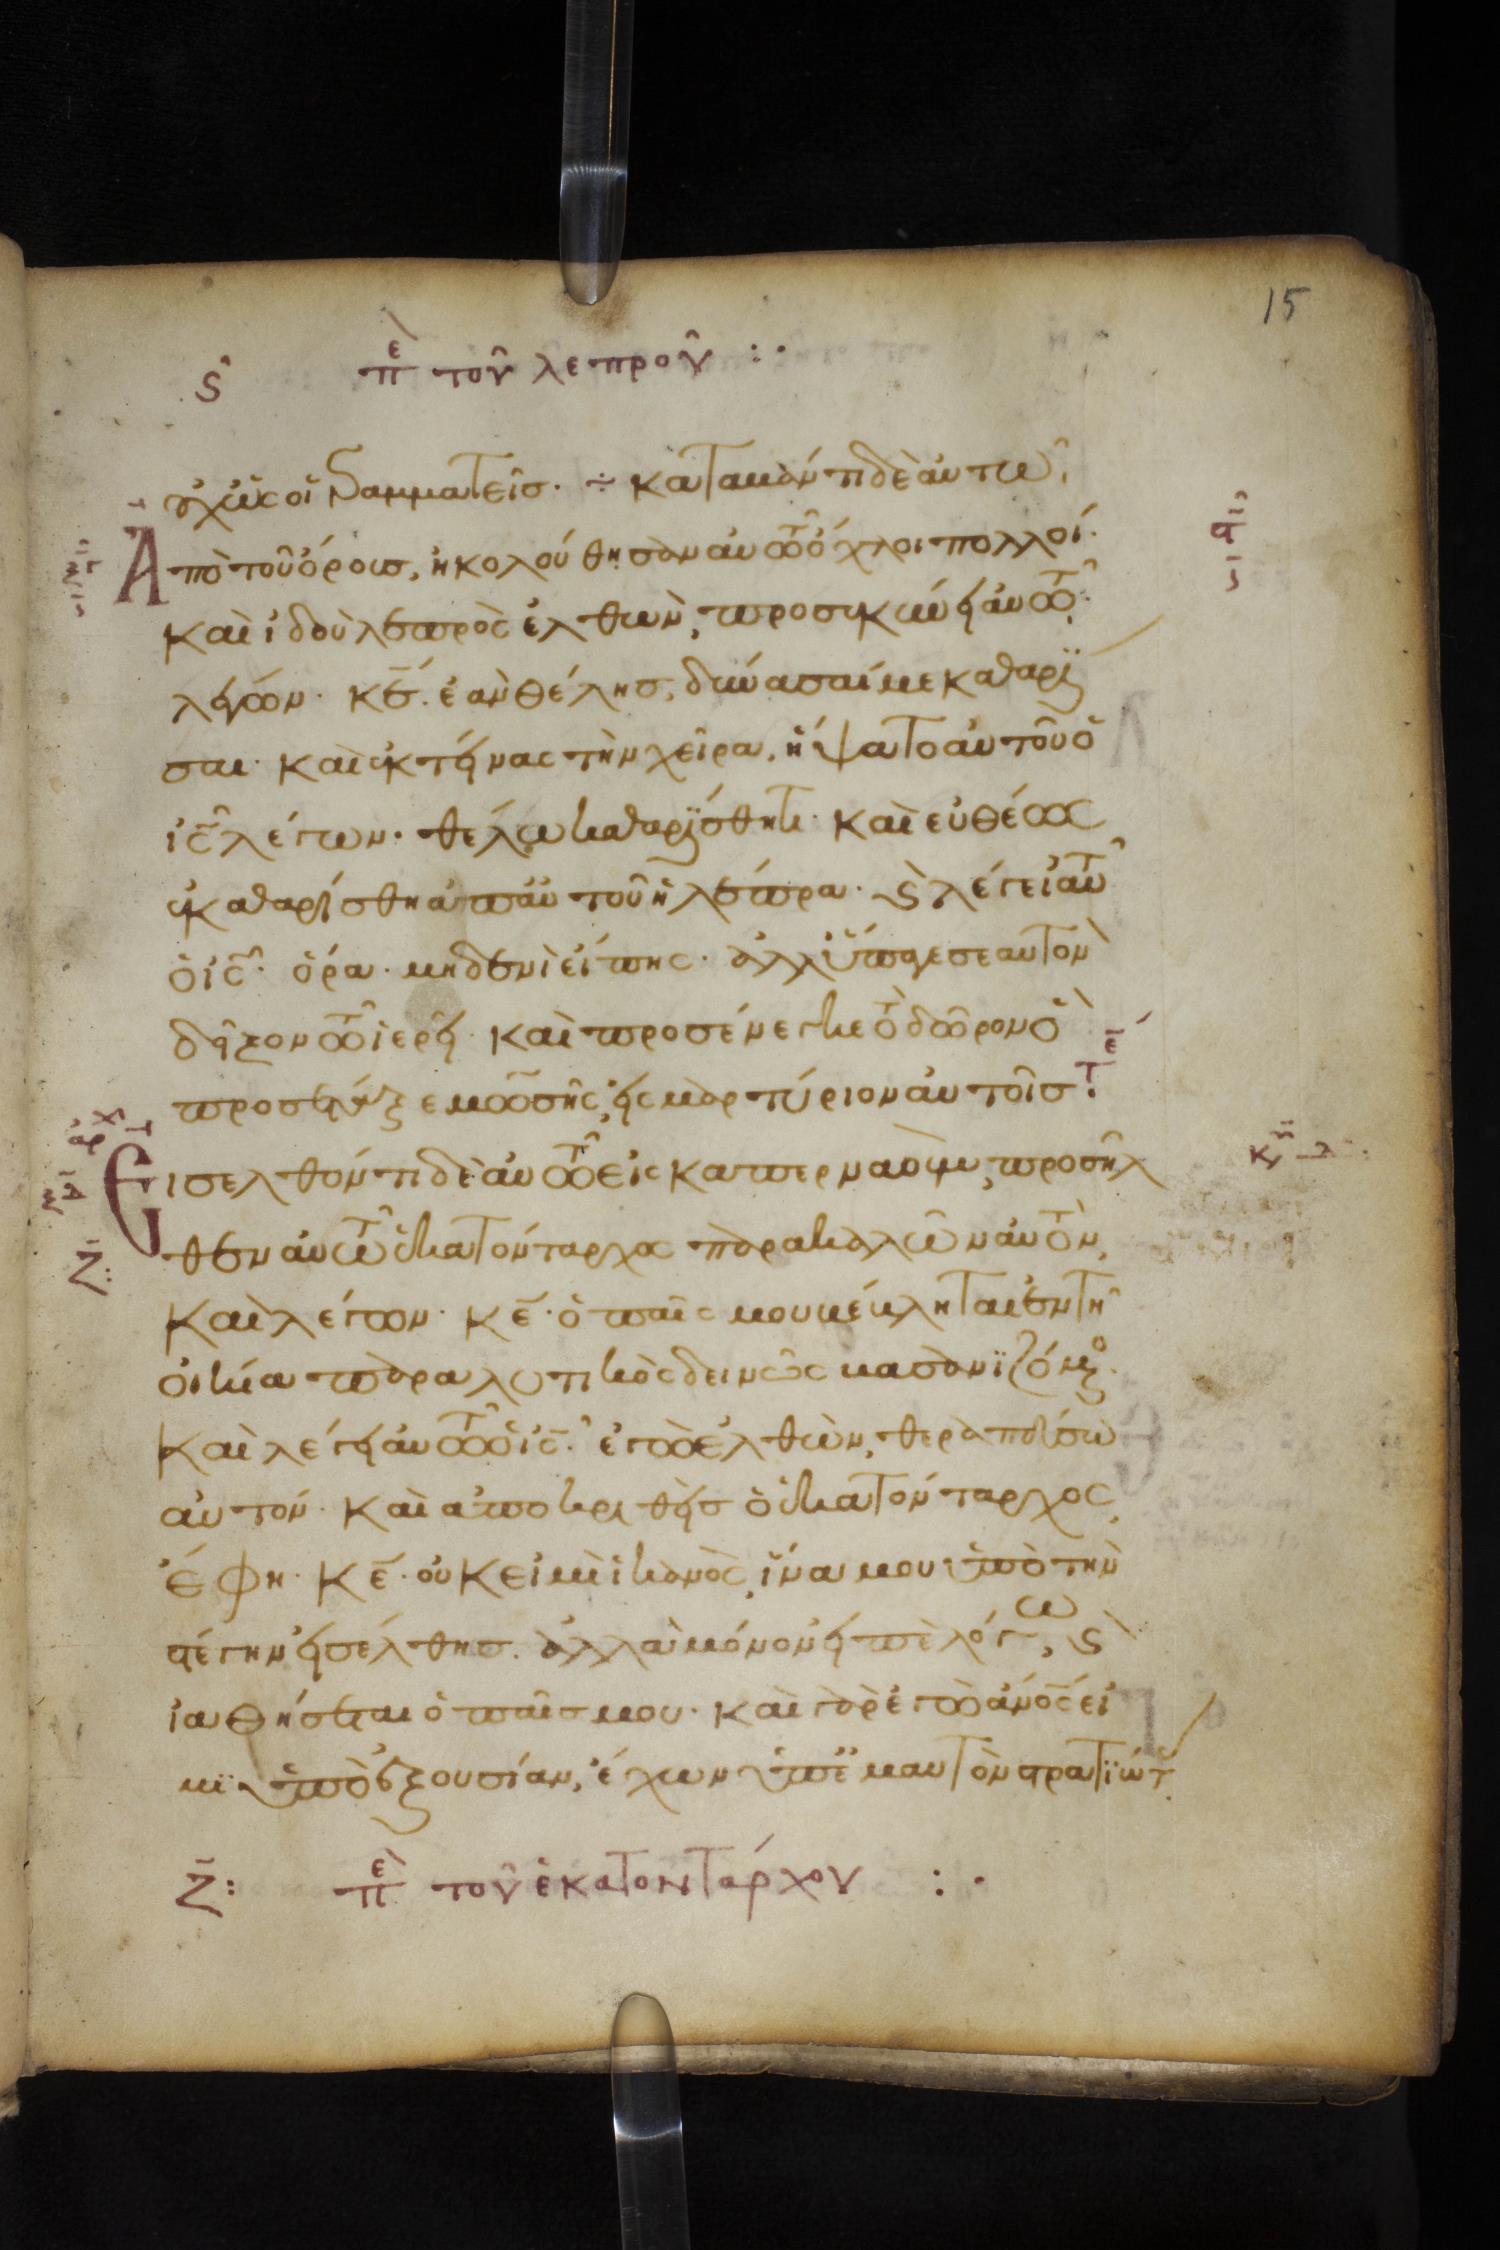 15
ϛ̂ πὲ τοῦ λεπροῦ :·
οὐχ ὡς οἱ γραμματεῖσ. ÷ καταβάντι δὲ αὐτῶ
Ἀπὸ τοῦ ὄρουσ, ἠκολούθησαν αὐτῶ ὄχλοι πολλοί.
καὶ ἰδοὺ λεπρὸς ἐλθὼν, προσεκύνει αὐτῶ.
λέγων. κε̄. ἐὰν θέλησ, δύνασαί με καθαρί
σαι. καὶ ἐκτείνας τὴν χεῖρα, ἥψατο αὐτοῦ ὁ
ις̄ λέγων. θέλω καθαρίσθητι. καὶ εὐθέως
ἐκαθαρίσθη ἀπ' αὐτοῦ ἡ λέπρα. ϗ λέγει αὐτῶ
ὁ ις̄. ὅρα. μηδενὶ εἴπης. ἀλλ' ὕπαγε σεαυτὸν
δεῖξον τῶ ἱερεῖ. καὶ προσένεγκε τὸ δῶρον ὃ
προσέταξε μωσῆς, εἰς μαρτύριον αὐτοῖσ.
Εἰσελθόντι δὲ αὐτῶ εἰς καπερναοὺμ, προσῆλ
θεν αὐτῶ ἑκατόνταρχος παρακαλῶν αὐτὸν,
καὶ λέγων. κε̄. ὁ παῖς μου βέβληται ἐν τῆ
οἰκία παραλυτικὸς δεινῶς βασανιζόμενο
καὶ λέγει αὐτῶ ὁ ις̄. ἐγὼ ἐλθὼν, θεραπεύσω
αὐτόν. καὶ ἀποκριθεὶσ ὁ ἑκατόνταρχος,
ἔφη. κε̄. οὐκ εἰμὶ ἱκανὸς, ἵνα μου ὑπὸ τὴν
στέγην εἰσέλθησ. ἀλλὰ μόνον εἰπὲ λόγω, ϗ
ἰαθήσεται ὁ παῖσ μου. καὶ γὰρ ἐγὼ ἄνος̄ εἰ
μι ὑπὸ ἐξουσίαν, ἔχων ὑπ' ἐμαυτὸν στρατιώτ
ζ̄: πὲ τοῦ ἑκατοντάρχου :·